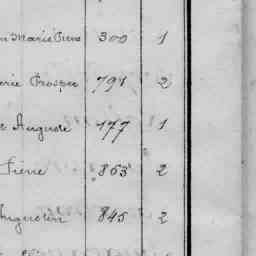 Marie Pierre 300 1
Prosper 791 2
Auguste 177 1
Pierre 853 2
Augustin 845 2